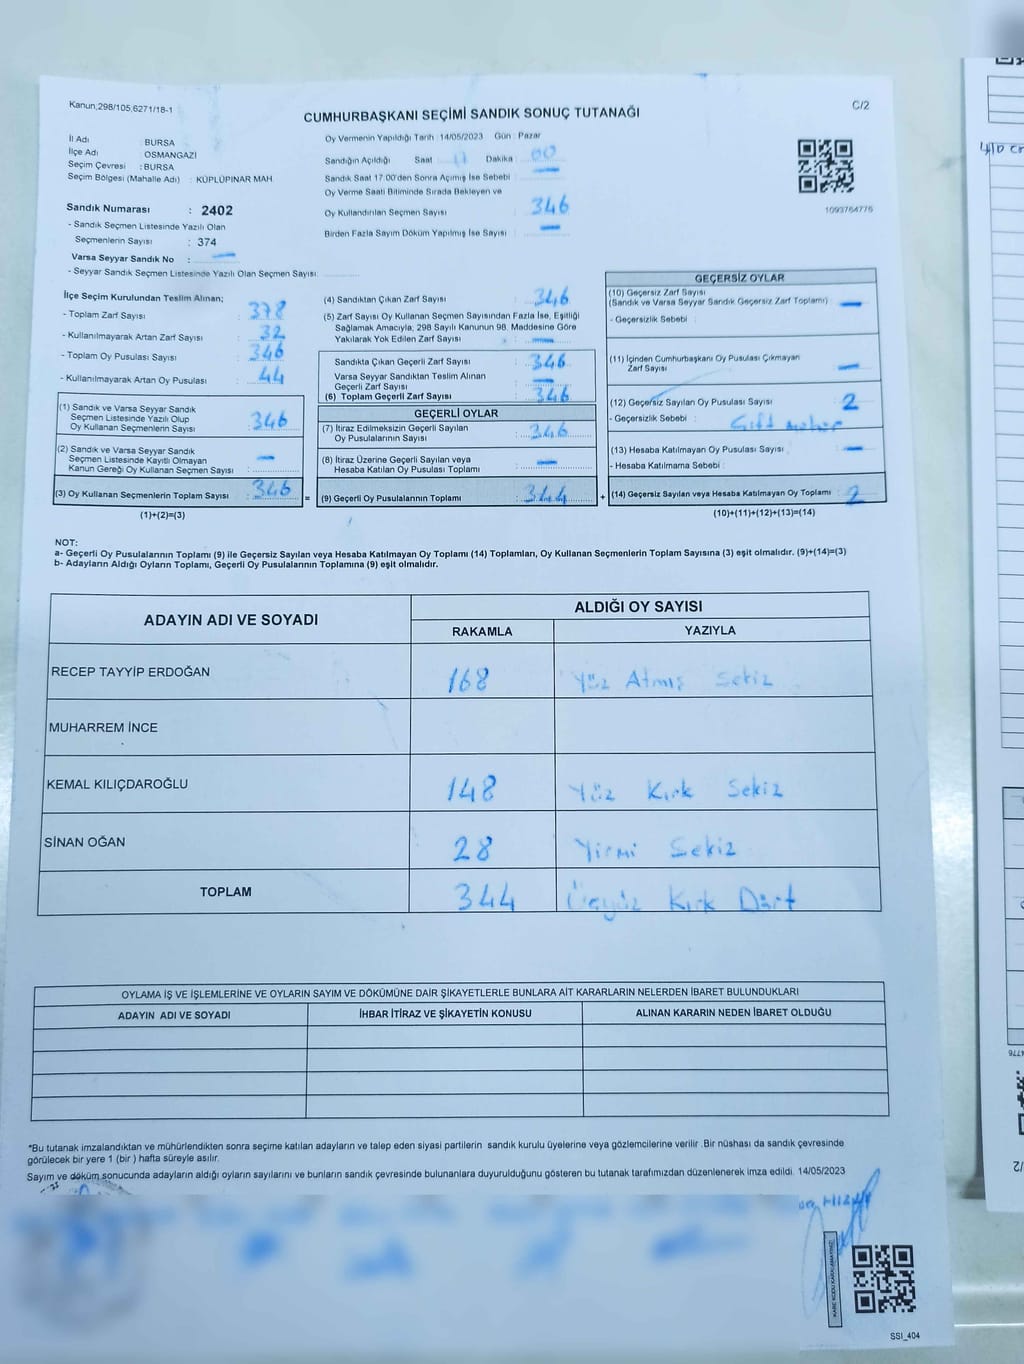 Kanun;298/105,6271/18-1
C/2
CUMHURBAŞKANI SEÇİMİ SANDIK SONUÇ TUTANAĞI
İl Adı : BURSA
İlçe Adı : OSMANGAZI
Seçim Çevresi : BURSA
Seçim Bölgesi (Mahalle Adı) : KÜPLÜPINAR MAH.
Sandık Numarası : 2402
- Sandık Seçmen Listesinde Yazılı Olan
Seçmenlerin Sayısı : 374
Varsa Seyyar Sandık No : —
- Seyyar Sandık Seçmen Listesinde Yazılı Olan Seçmen Sayısı:
Oy Vermenin Yapıldığı Tarih : 14/05/2023 Gün : Pazar
Sandığın Açıldığı Saat 17 Dakika : 00
Sandık Saat 17.00'den Sonra Açımış İse Sebebi : —
Oy Verme Saati Bitiminde Sırada Bekleyen ve
Oy Kullandırılan Seçmen Sayısı : 346
Birden Fazla Sayım Döküm Yapılmış İse Sayısı : —
1093764776
İlçe Seçim Kurulundan Teslim Alınan;
- Toplam Zarf Sayısı : 378
- Kullanılmayarak Artan Zarf Sayısı : 32
- Toplam Oy Pusulası Sayısı : 346
- Kullanılmayarak Artan Oy Pusulası : 44
(1) Sandık ve Varsa Seyyar Sandık
Seçmen Listesinde Yazılı Olup
Oy Kullanan Seçmenlerin Sayısı : 346
(2) Sandık ve Varsa Seyyar Sandık
Seçmen Listesinde Kayıtlı Olmayan
Kanun Gereği Oy Kullanan Seçmen Sayısı : —
(3) Oy Kullanan Seçmenlerin Toplam Sayısı : 346
(1)+(2)=(3)
(4) Sandıktan Çıkan Zarf Sayısı : 346
(5) Zarf Sayısı Oy Kullanan Seçmen Sayısından Fazla İse, Eşitliği
Sağlamak Amacıyla, 298 Sayılı Kanunun 98. Maddesine Göre
Yakılarak Yok Edilen Zarf Sayısı : —
Sandıkta Çıkan Geçerli Zarf Sayısı : 346
Varsa Seyyar Sandıktan Teslim Alınan
Geçerli Zarf Sayısı : —
(6) Toplam Geçerli Zarf Sayısı : 346
GEÇERLİ OYLAR
(7) İtiraz Edilmeksizin Geçerli Sayılan
Oy Pusulalarının Sayısı : 346
(8) İtiraz Üzerine Geçerli Sayılan veya
Hesaba Katılan Oy Pusulası Toplamı : —
= (9) Geçerli Oy Pusulalarının Toplamı : 344 +
GEÇERSİZ OYLAR
(10) Geçersiz Zarf Sayısı
(Sandık ve Varsa Seyyar Sandık Geçersiz Zarf Toplamı) : —
- Geçersizlik Sebebi :
(11) İçinden Cumhurbaşkanı Oy Pusulası Çıkmayan
Zarf Sayısı : —
(12) Geçersiz Sayılan Oy Pusulası Sayısı : 2
- Geçersizlik Sebebi : Çift mühür
(13) Hesaba Katılmayan Oy Pusulası Sayısı : —
- Hesaba Katılmama Sebebi :
(14) Geçersiz Sayılan veya Hesaba Katılmayan Oy Toplamı : 2
(10)+(11)+(12)+(13)=(14)
NOT:
a- Geçerli Oy Pusulalarının Toplamı (9) ile Geçersiz Sayılan veya Hesaba Katılmayan Oy Toplamı (14) Toplamları, Oy Kullanan Seçmenlerin Toplam Sayısına (3) eşit olmalıdır. (9)+(14)=(3)
b- Adayların Aldığı Oyların Toplamı, Geçerli Oy Pusulalarının Toplamına (9) eşit olmalıdır.
ADAYIN ADI VE SOYADI ALDIĞI OY SAYISI
RAKAMLA YAZIYLA
RECEP TAYYİP ERDOĞAN 168 Yüz Atmış Sekiz
MUHARREM İNCE
KEMAL KILIÇDAROĞLU 148 Yüz Kırk Sekiz
SİNAN OĞAN 28 Yirmi Sekiz
TOPLAM 344 Üçyüz Kırk Dört
OYLAMA İŞ VE İŞLEMLERİNE VE OYLARIN SAYIM VE DÖKÜMÜNE DAİR ŞİKAYETLERLE BUNLARA AİT KARARLARIN NELERDEN İBARET BULUNDUKLARI
ADAYIN ADI VE SOYADI İHBAR İTİRAZ VE ŞİKAYETİN KONUSU ALINAN KARARIN NEDEN İBARET OLDUĞU
*Bu tutanak imzalandıktan ve mühürlendikten sonra seçime katılan adayların ve talep eden siyasi partilerin sandık kurulu üyelerine veya gözlemcilerine verilir .Bir nüshası da sandık çevresinde
görülecek bir yere 1 (bir ) hafta süreyle asılır.
Sayım ve döküm sonucunda adayların aldığı oyların sayılarını ve bunların sandık çevresinde bulunanlara duyurulduğunu gösteren bu tutanak tarafımızdan düzenlenerek imza edildi. 14/05/2023
SSI_404